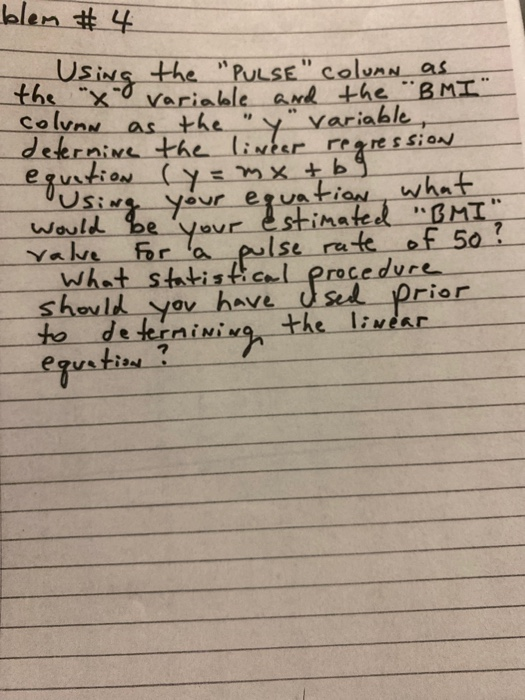 blem # 4
Using the "PULSE" column as
the "x" variable and the "BMI"
column as the "y" variable,
determine the linear regression
equation (y = mx + b)
Using your equation, what
would be your estimated "BMI"
value for a pulse rate of 50?
What statistical procedure
should you have used prior
to determining the linear
equation?